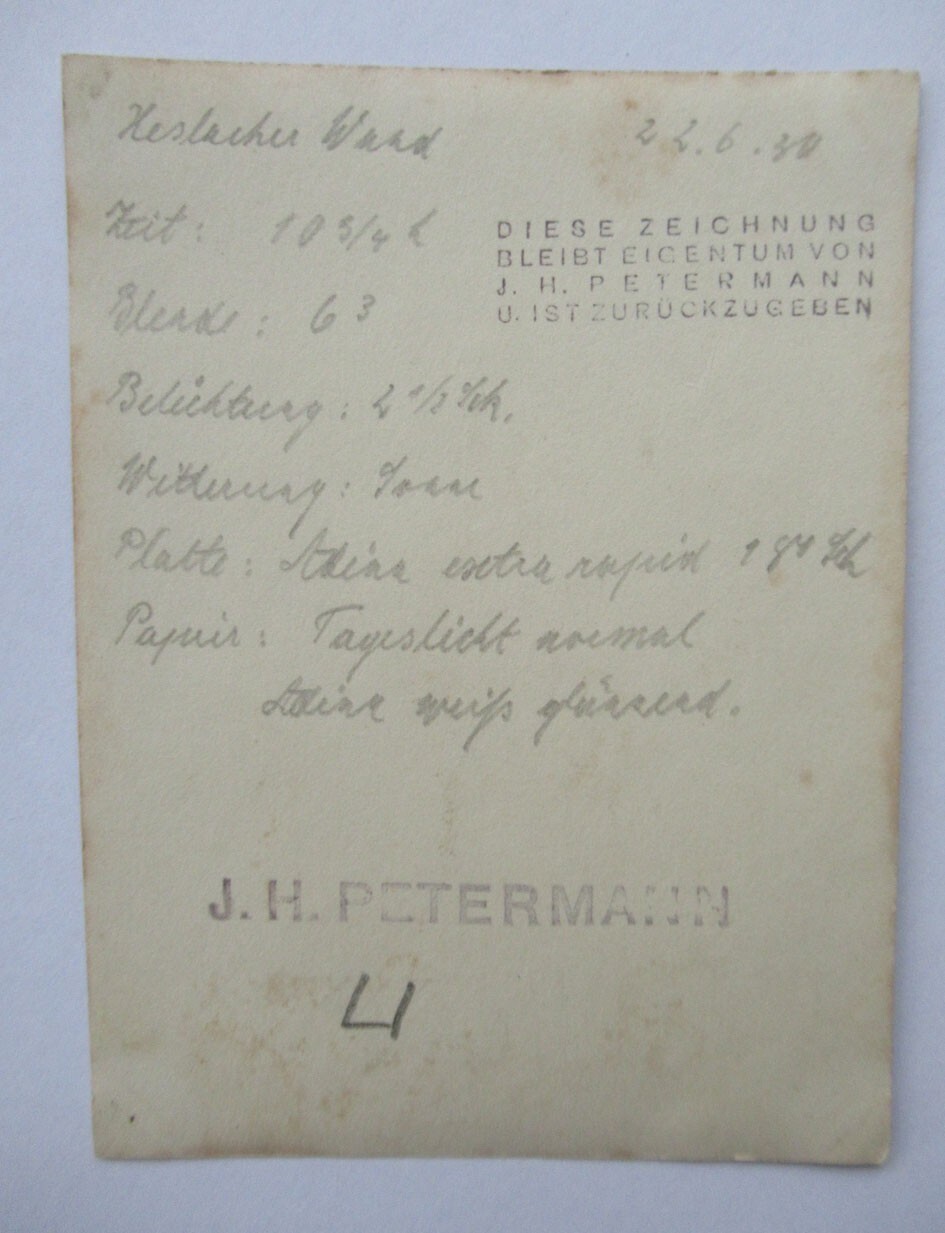 Heslacher Wand 22.6.30
Zeit: 10 3/4 h
DIESE ZEICHNUNG
BLEIBT EIGENTUM VON
J. H. PETERMANN
U. IST ZURÜCKZUGEBEN
Blende: 6³
Belichtung: 2 1/2 Sek.
Witterung: Sonne
Platte: extra rapid
Papier: Tageslicht normal
weiß glänzend.
J. H. PETERMANN